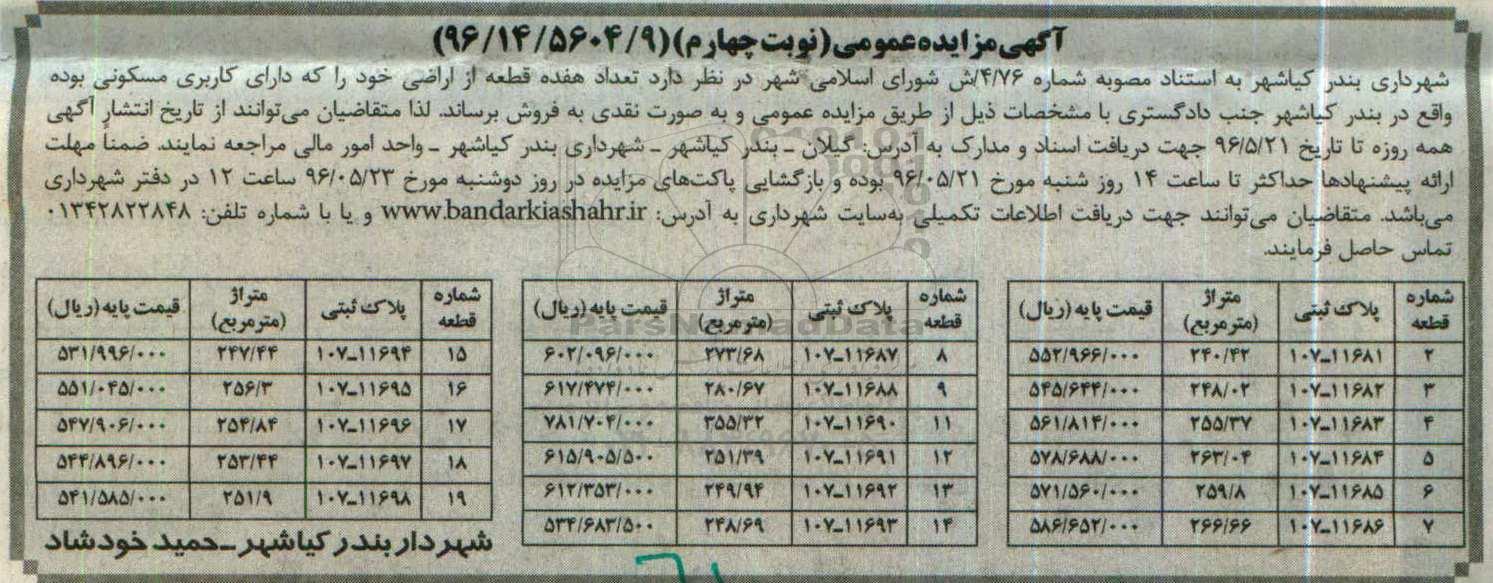 آگهی مزایده عمومی (نوبت چهارم) (۹۶/۱۴/۵۶۰۴/۹)
شهرداری بندر کیاشهر به استناد مصوبه شماره ۴/۷۶/ش شورای اسلامی شهر در نظر دارد تعداد هفده قطعه از اراضی خود را که دارای کاربری مسکونی بوده
واقع در بندر کیاشهر جنب دادگستری با مشخصات ذیل از طریق مزایده عمومی و به صورت نقدی به فروش برساند. لذا متقاضیان می‌توانند از تاریخ انتشار آگهی
همه روزه تا تاریخ ۹۶/۵/۲۱ جهت دریافت اسناد و مدارک به آدرس: گیلان ـ بندر کیاشهر ـ شهرداری بندر کیاشهر ـ واحد امور مالی مراجعه نمایند. ضمناً مهلت
ارائه پیشنهادها حداکثر تا ساعت ۱۴ روز شنبه مورخ ۹۶/۰۵/۲۱ بوده و بازگشایی پاکت‌های مزایده در روز دوشنبه مورخ ۹۶/۰۵/۲۳ ساعت ۱۲ در دفتر شهرداری
می‌باشد. متقاضیان می‌توانند جهت دریافت اطلاعات تکمیلی به‌سایت شهرداری به آدرس: www.bandarkiashahr.ir و یا با شماره تلفن: ۰۱۳۴۲۸۲۲۸۴۸
تماس حاصل فرمایند.
شماره قطعه پلاک ثبتی متراژ (مترمربع) قیمت پایه (ریال)
۲ ۱۰۷ـ۱۱۶۸۱ ۲۴۰/۴۲ ۵۵۲/۹۶۶/۰۰۰
۳ ۱۰۷ـ۱۱۶۸۲ ۲۴۸/۰۲ ۵۴۵/۶۴۴/۰۰۰
۴ ۱۰۷ـ۱۱۶۸۳ ۲۵۵/۳۷ ۵۶۱/۸۱۴/۰۰۰
۵ ۱۰۷ـ۱۱۶۸۴ ۲۶۳/۰۴ ۵۷۸/۶۸۸/۰۰۰
۶ ۱۰۷ـ۱۱۶۸۵ ۲۵۹/۸ ۵۷۱/۵۶۰/۰۰۰
۷ ۱۰۷ـ۱۱۶۸۶ ۲۶۶/۶۶ ۵۸۶/۶۵۲/۰۰۰
شماره قطعه پلاک ثبتی متراژ (مترمربع) قیمت پایه (ریال)
۸ ۱۰۷ـ۱۱۶۸۷ ۲۷۳/۶۸ ۶۰۲/۰۹۶/۰۰۰
۹ ۱۰۷ـ۱۱۶۸۸ ۲۸۰/۶۷ ۶۱۷/۴۷۴/۰۰۰
۱۱ ۱۰۷ـ۱۱۶۹۰ ۳۵۵/۳۲ ۷۸۱/۷۰۴/۰۰۰
۱۲ ۱۰۷ـ۱۱۶۹۱ ۲۵۱/۳۹ ۶۱۵/۹۰۵/۵۰۰
۱۳ ۱۰۷ـ۱۱۶۹۲ ۲۴۹/۹۴ ۶۱۲/۳۵۳/۰۰۰
۱۴ ۱۰۷ـ۱۱۶۹۳ ۲۴۸/۶۹ ۵۳۴/۶۸۳/۵۰۰
شماره قطعه پلاک ثبتی متراژ (مترمربع) قیمت پایه (ریال)
۱۵ ۱۰۷ـ۱۱۶۹۴ ۲۴۷/۴۴ ۵۳۱/۹۹۶/۰۰۰
۱۶ ۱۰۷ـ۱۱۶۹۵ ۲۵۶/۳ ۵۵۱/۰۴۵/۰۰۰
۱۷ ۱۰۷ـ۱۱۶۹۶ ۲۵۴/۸۴ ۵۴۷/۹۰۶/۰۰۰
۱۸ ۱۰۷ـ۱۱۶۹۷ ۲۵۳/۴۴ ۵۴۴/۸۹۶/۰۰۰
۱۹ ۱۰۷ـ۱۱۶۹۸ ۲۵۱/۹ ۵۴۱/۵۸۵/۰۰۰
شهردار بندر کیاشهر ـ حمید خودشاد
ParsNamadData